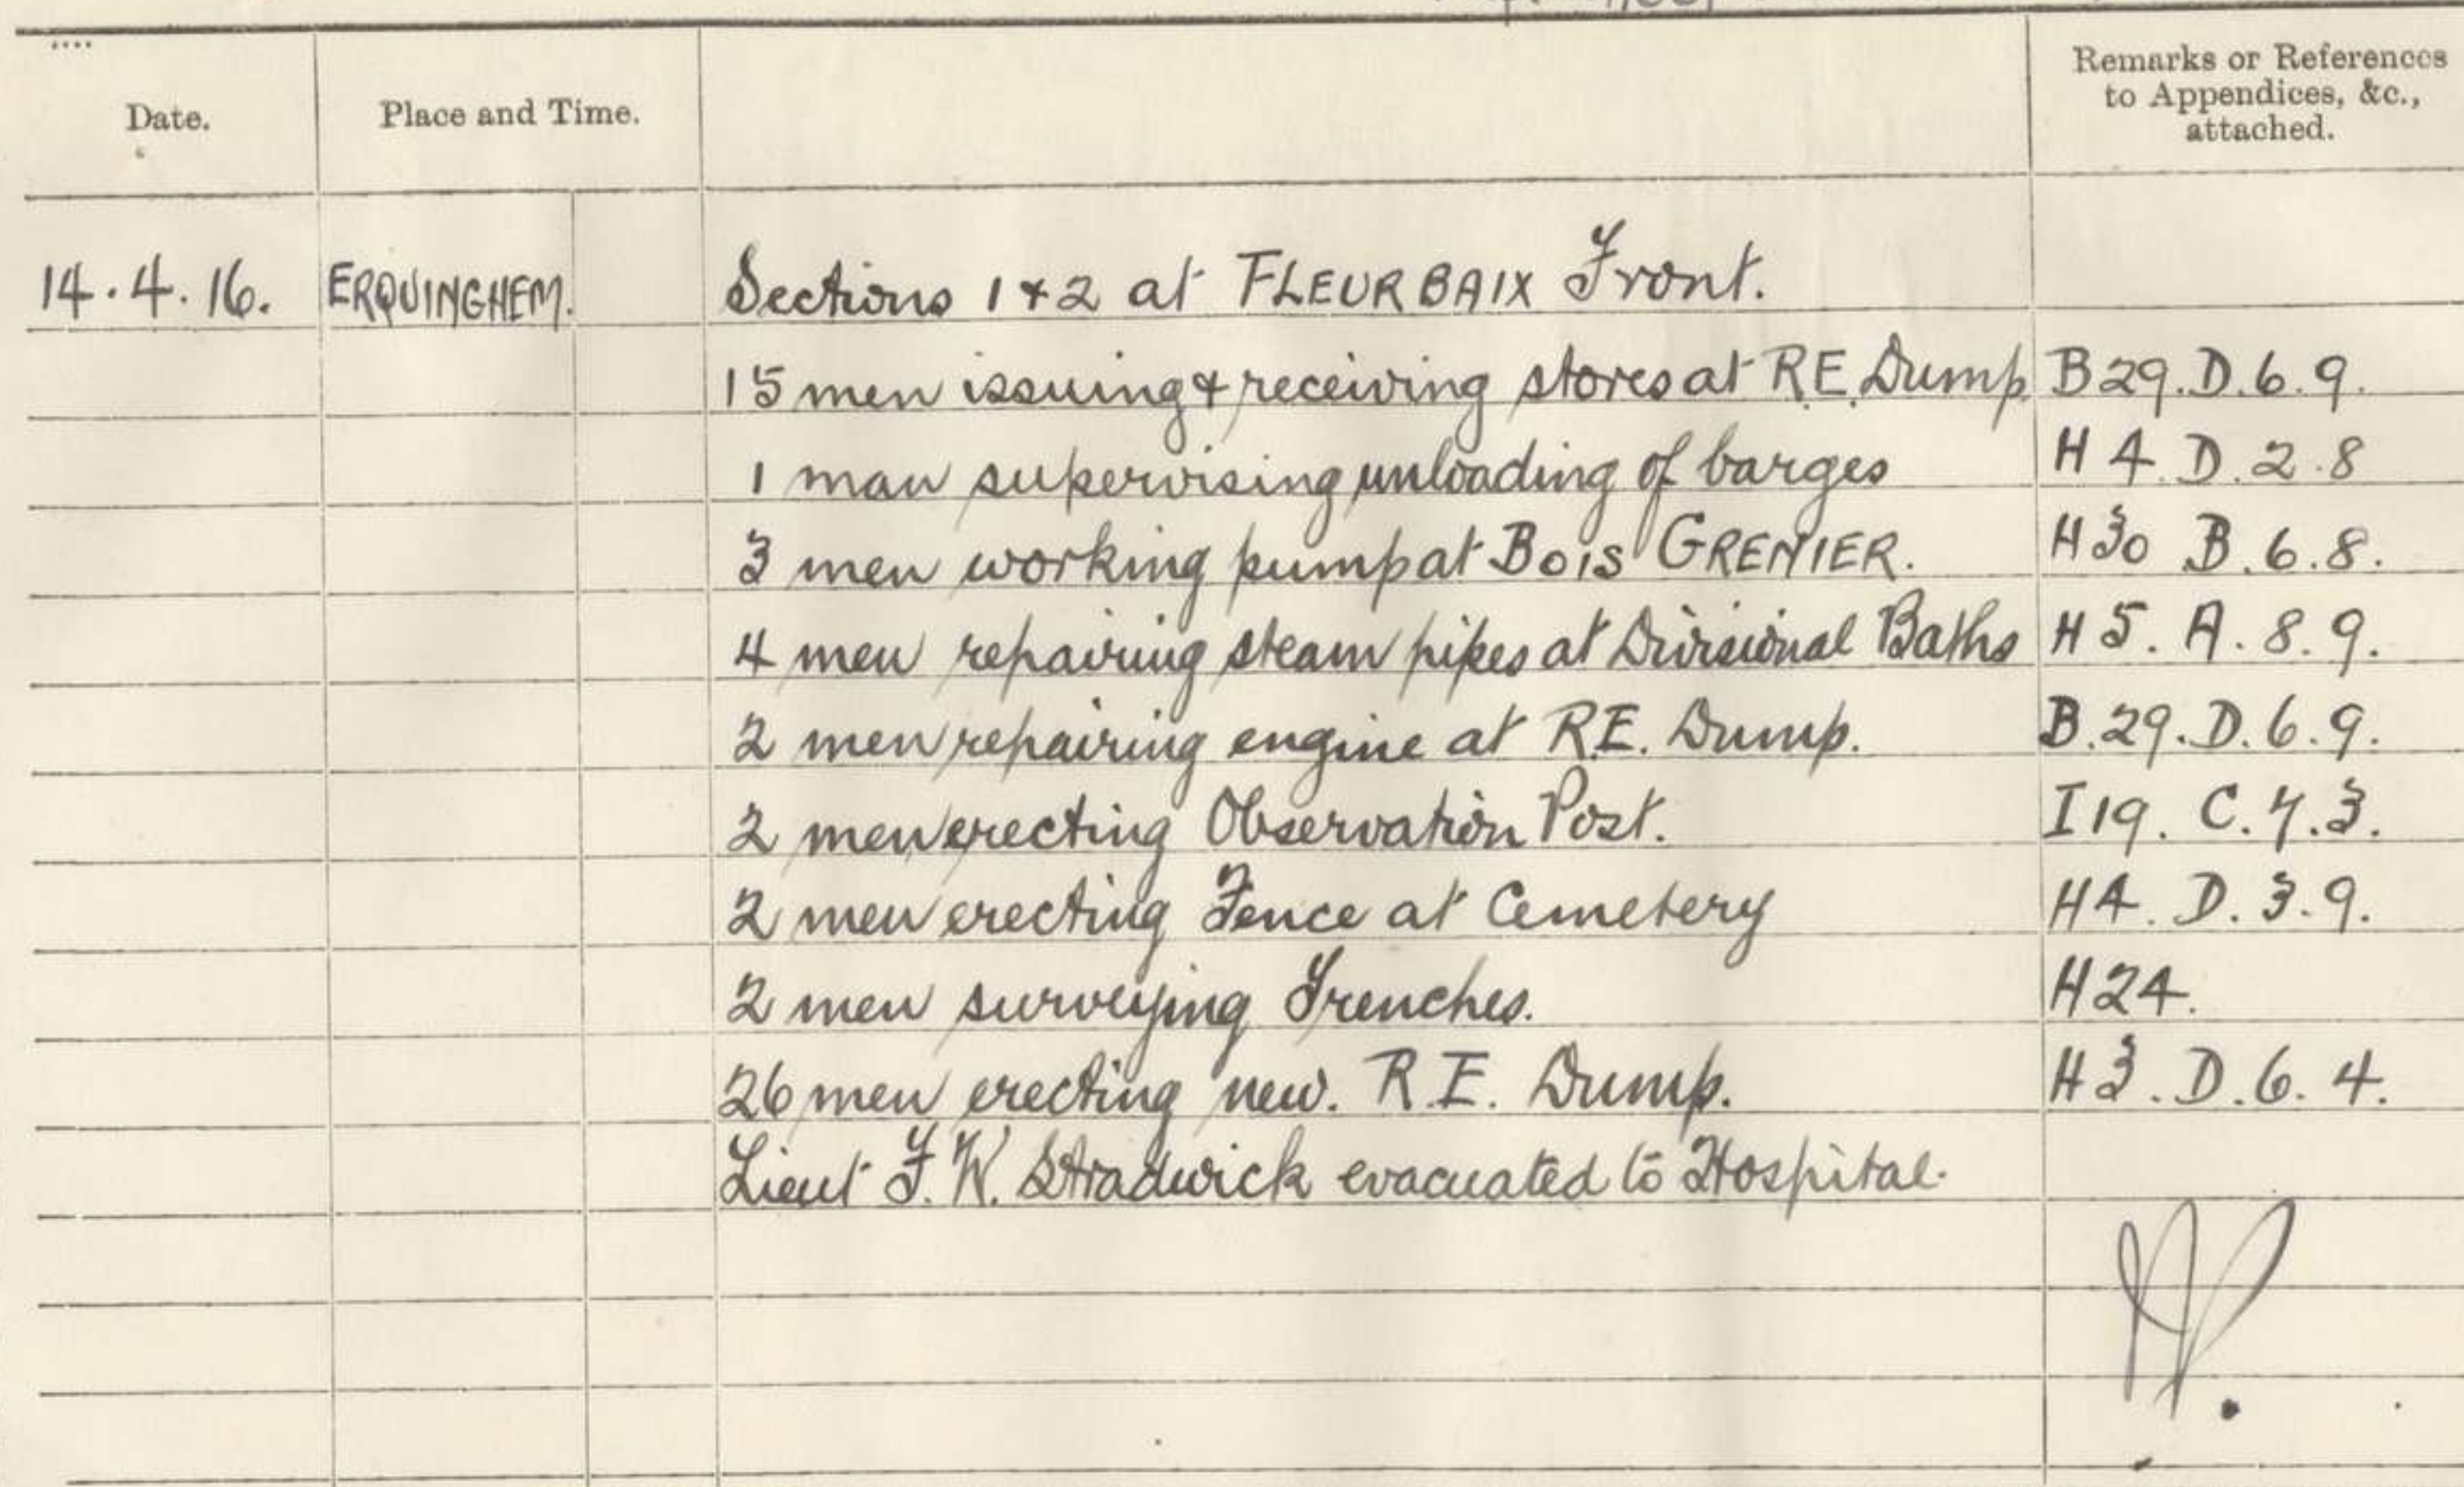 Date.
Place and Time.
Remarks or References
to Appendices, &c.,
attached.
14.4.16. ERQUINGHEM. Sections 1 & 2 at FLEURBAIX Front.
15 men issuing & receiving stores at R.E. Dump B 29. D. 6. 9.
1 man supervising unloading of barges H 4. D. 2. 8
3 men working pump at BOIS GRENIER. H 30 B. 6. 8.
4 men repairing steam pipes at Divisional Baths H 5. A. 8. 9.
2 men repairing engine at R.E. Dump. B. 29. D. 6. 9.
2 men erecting Observation Post. I 19. C. 7. 3.
2 men erecting Fence at Cemetery H 4. D. 3. 9.
2 men surveying Trenches. H 24.
26 men erecting new. R.E. Dump. H 3. D. 6. 4.
Lieut F. W. Stradwick evacuated to Hospital.